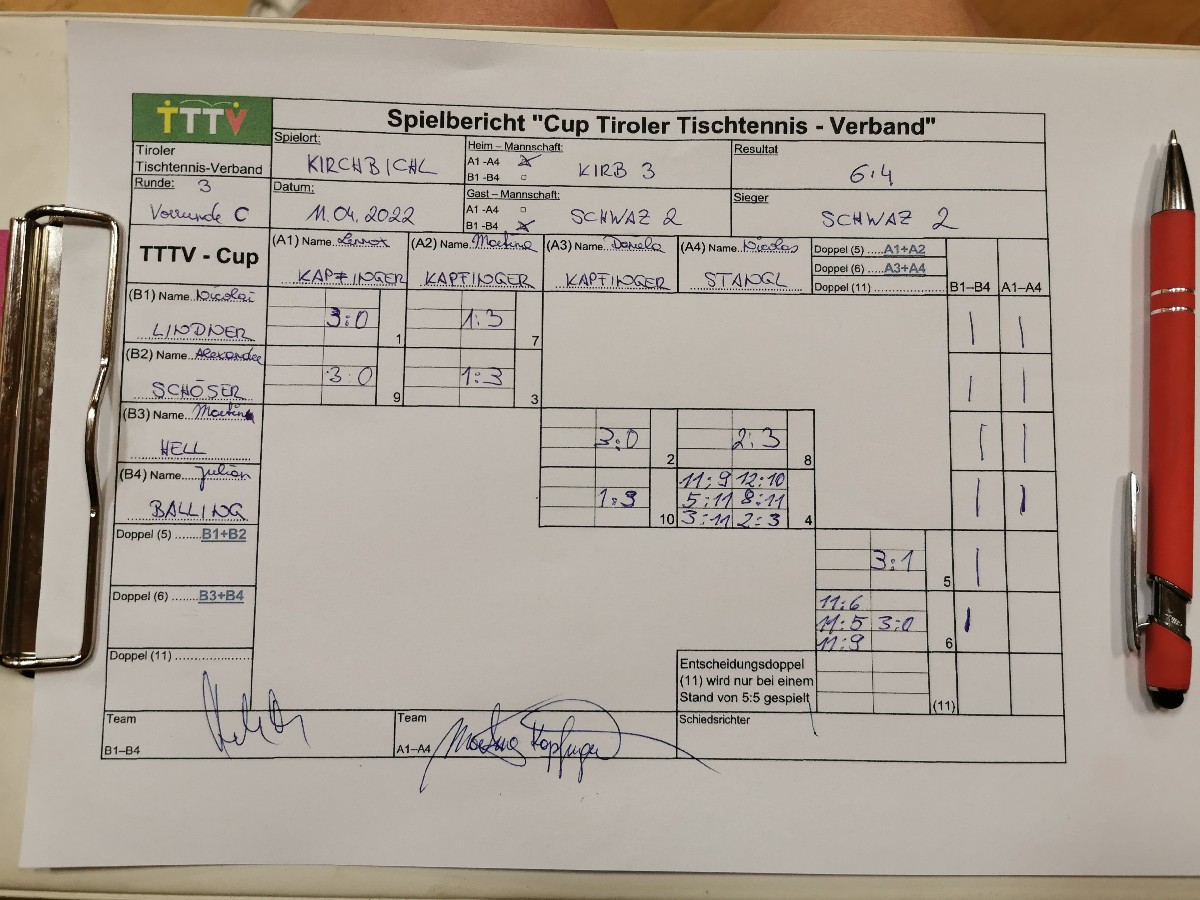 TTTV
Spielbericht "Cup Tiroler Tischtennis - Verband"
Tiroler
Tischtennis-Verband
Spielort:
KIRCHBICHL
Heim – Mannschaft:
A1 -A4
B1 -B4
KIRB 3
Resultat
6:4
Runde: 3
Vorrunde C
Datum:
11.04.2022
Gast – Mannschaft:
A1 -A4
B1 -B4
SCHWAZ 2
Sieger
SCHWAZ 2
TTTV - Cup
(A1) Name Lennox
KAPFINGER
(A2) Name Martina
KAPFINGER
(A3) Name Daniela
KAPFINGER
(A4) Name Nicolas
STANGL
Doppel (5) ....A1+A2
Doppel (6) ....A3+A4
Doppel (11)
B1–B4
A1–A4
(B1) Name Nicolai
LINDNER
3:0
1
1:3
7
| |
(B2) Name Alexander
SCHÖSER
3:0
9
1:3
3
| |
(B3) Name Martin
HELL
3:0
2
2:3
8
| |
(B4) Name Julian
BALLING
1:3
10
11:9 12:10
5:11 8:11
3:11 2:3
4
| |
Doppel (5) .......B1+B2
3:1
5
|
Doppel (6) .......B3+B4
11:6
11:5 3:0
11:9
6
|
Doppel (11)
Entscheidungsdoppel
(11) wird nur bei einem
Stand von 5:5 gespielt
(11)
Team
B1–B4
Team
A1–A4
Martina Kapfinger
Schiedsrichter